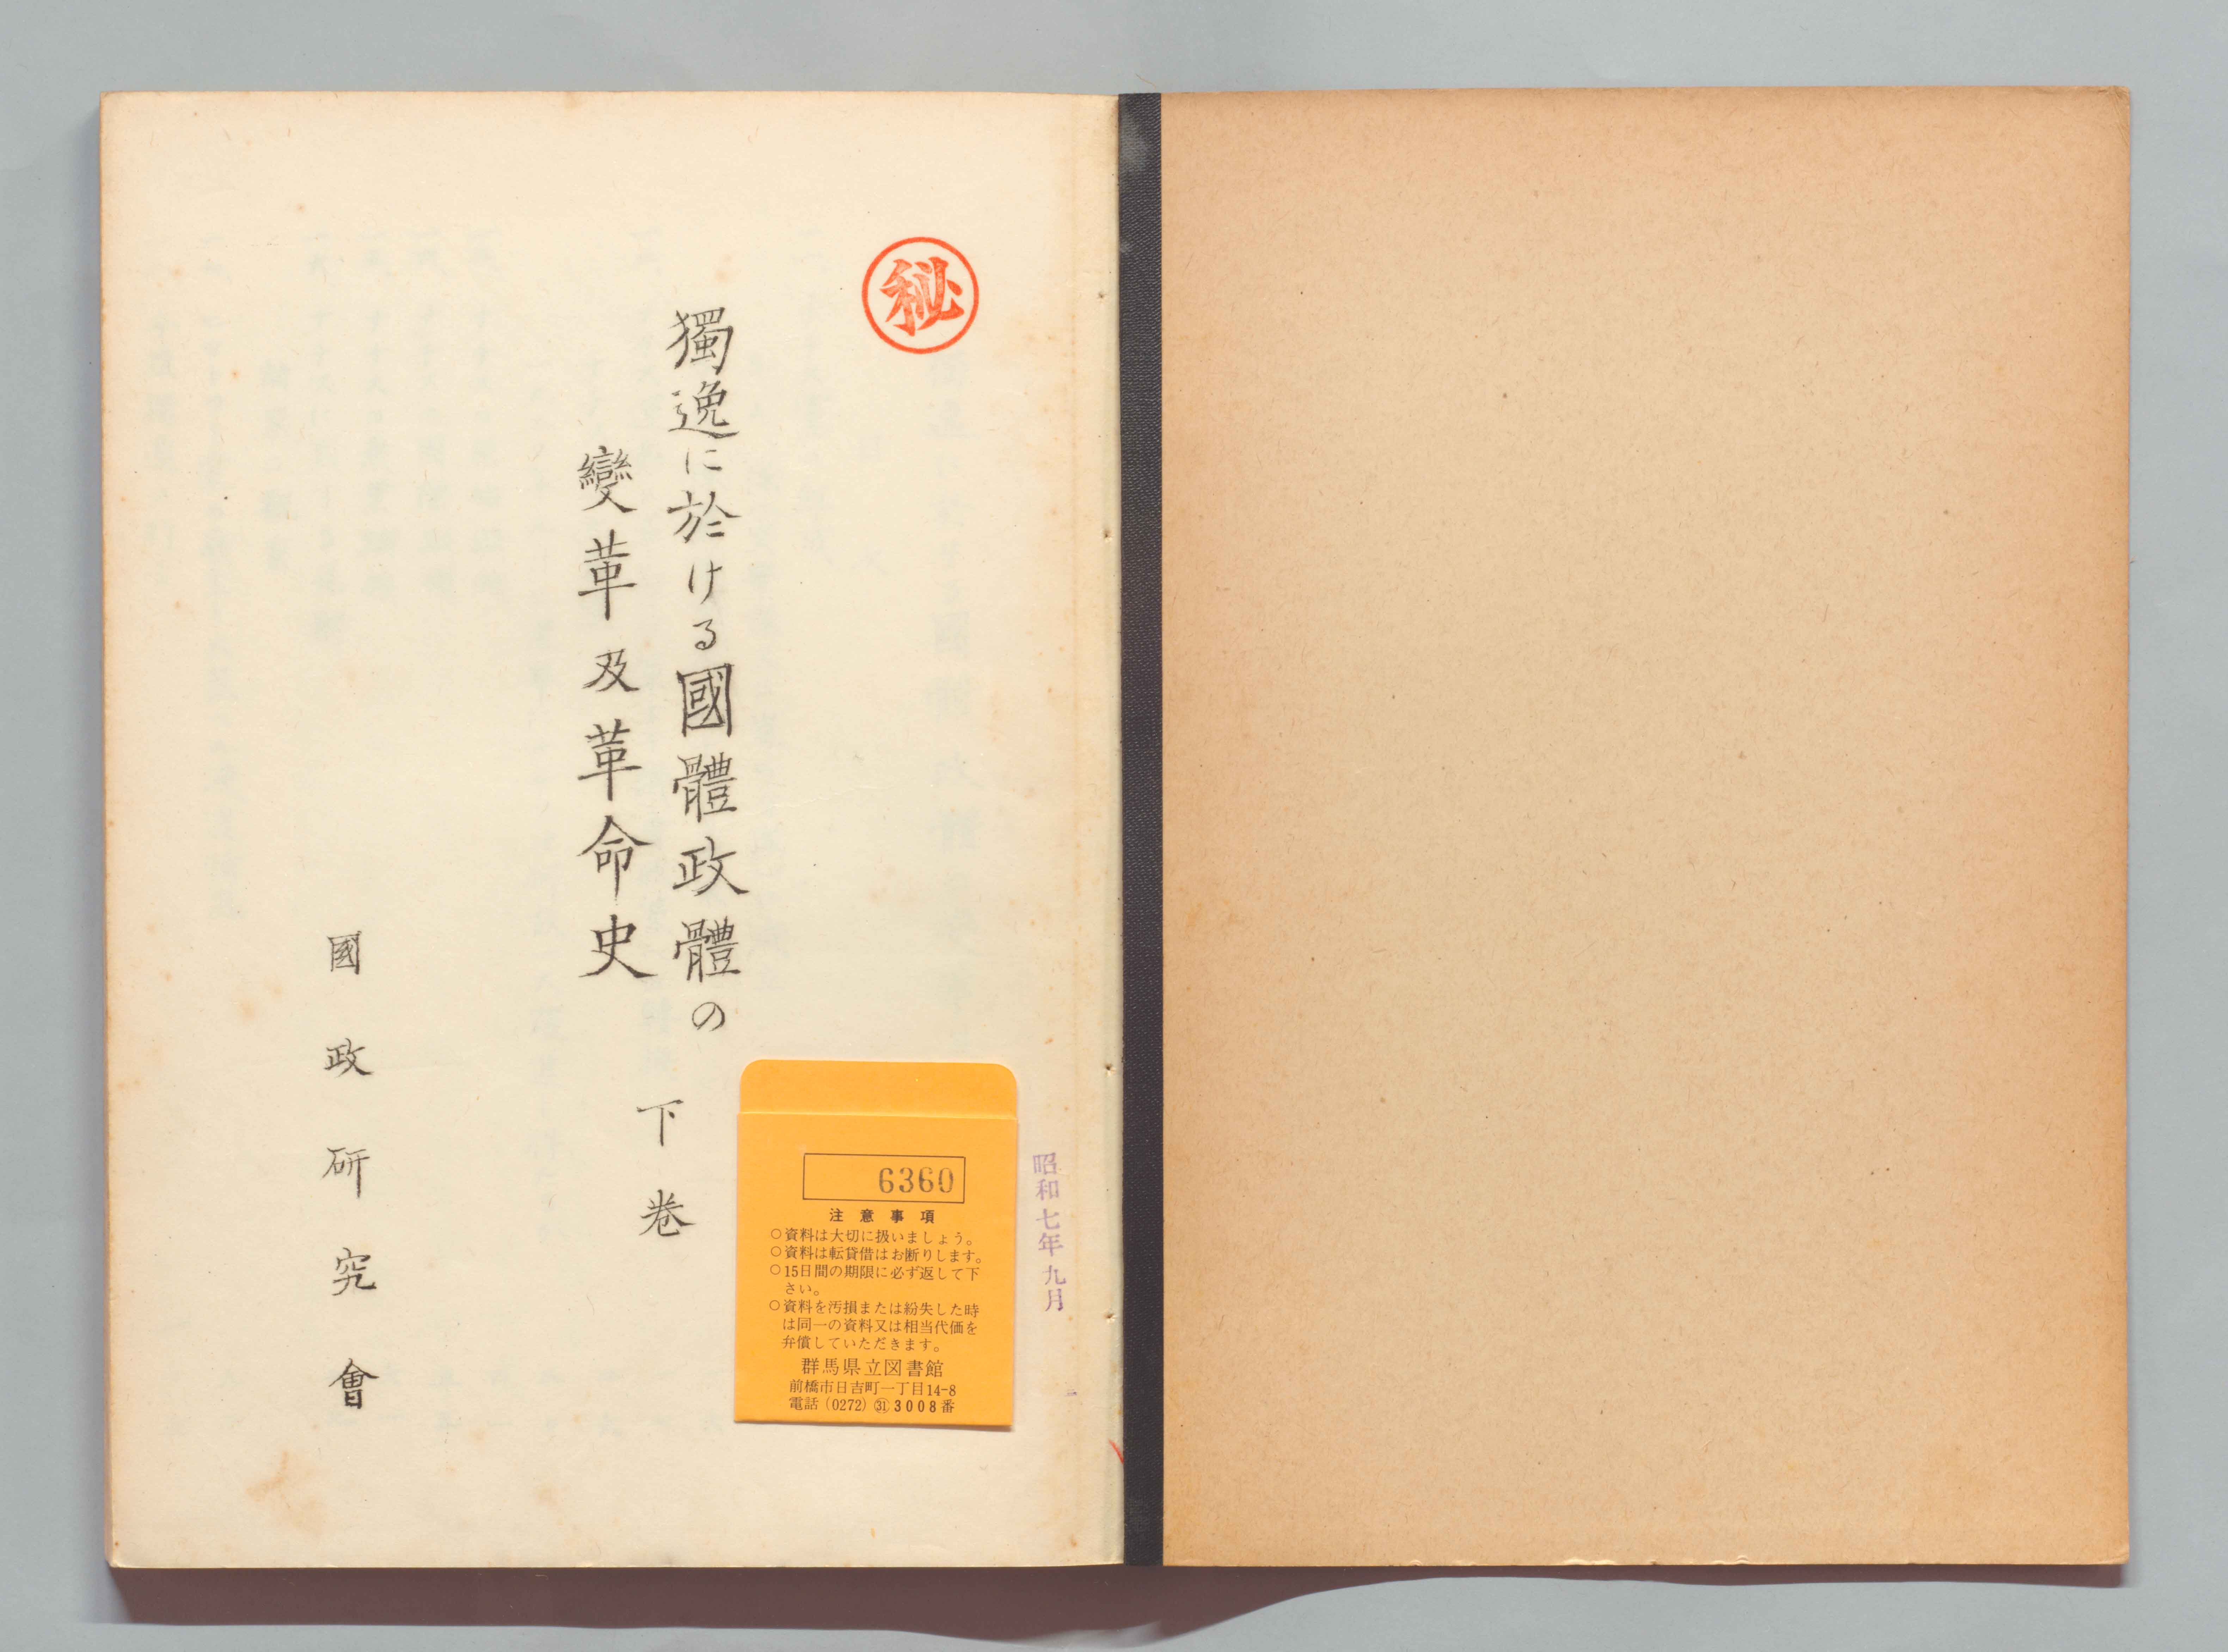 秘
獨逸に於ける國體政體の
變革及革命史
下巻
國政研究會
昭和七年九月
6360
注意事項
○資料は大切に扱いましょう。
○資料は転貸借はお断りします。
○15日間の期限に必ず返して下
さい。
○資料を汚損または紛失した時
は同一の資料又は相当代価を
弁償していただきます。
群馬県立図書館
前橋市日吉町一丁目14-8
電話(0272)㉛3008番